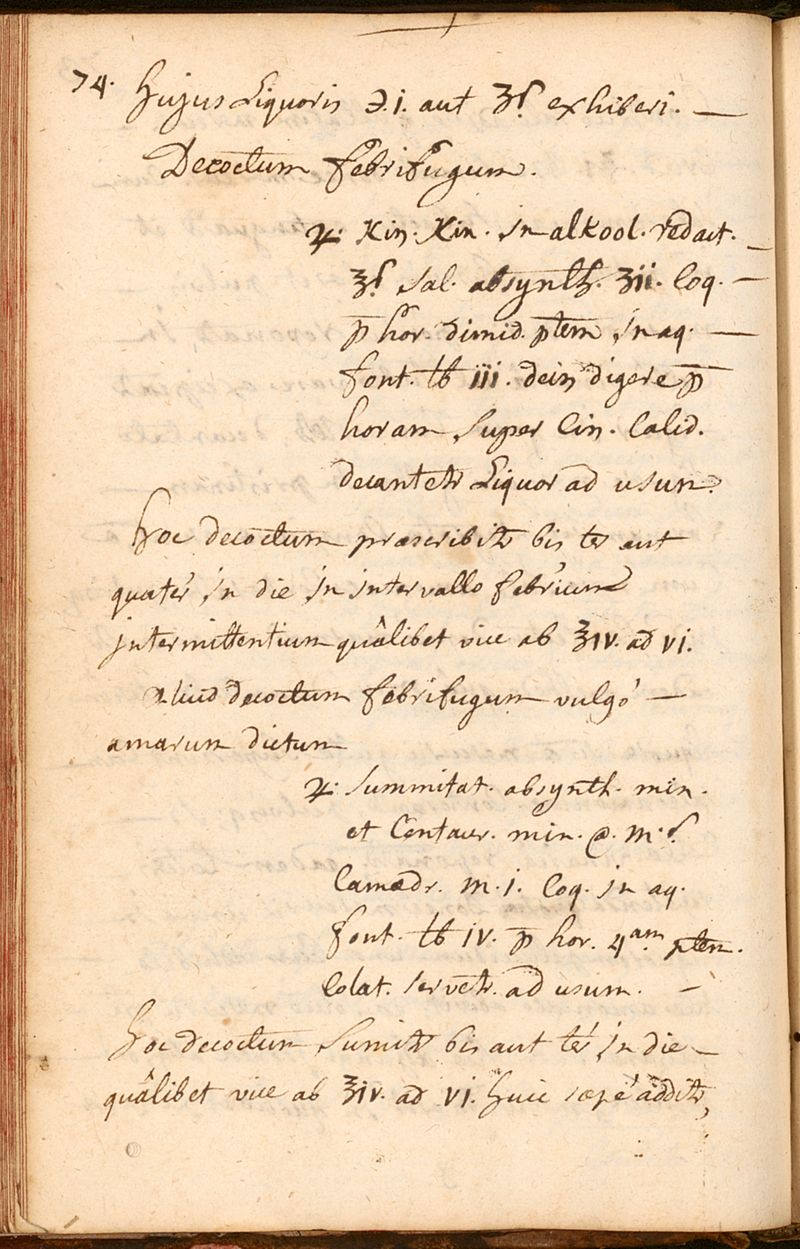 74. hujus Liquoris ℈.i. aut ʒſ exhiberi. —
Decoctum febrifugum.
♃. Kin. Kin. in alkool. redact. —
℥ſ sal. absynth. ʒii. Coq. —
p̄ hor. dimid. ptem in aq. —
font. ℔ iii. dein digere p̄
horam super Cin. Calid.
decantetr Liquor ad usum.
hoc decoctum præscribitr bis ter aut
quatér in die in intervallo febrium
intermittentium quâlibet vice ab ℥iv. ad vi.
aliud decoctum febrifugum vulgó —
amarum dictum
♃. summitat. absynth. min.
et Centaur. min. @. m. ſ.
Camædr. m. i. Coq. in aq.
font. ℔ iv. p̄ hor. 4am. ptem.
Colat. servetr. ad usum. —
hoc decoctum sumitr bis aut tér in die —
quâlibet vice ab ℥iv. ad vi. huic sæpé additr,